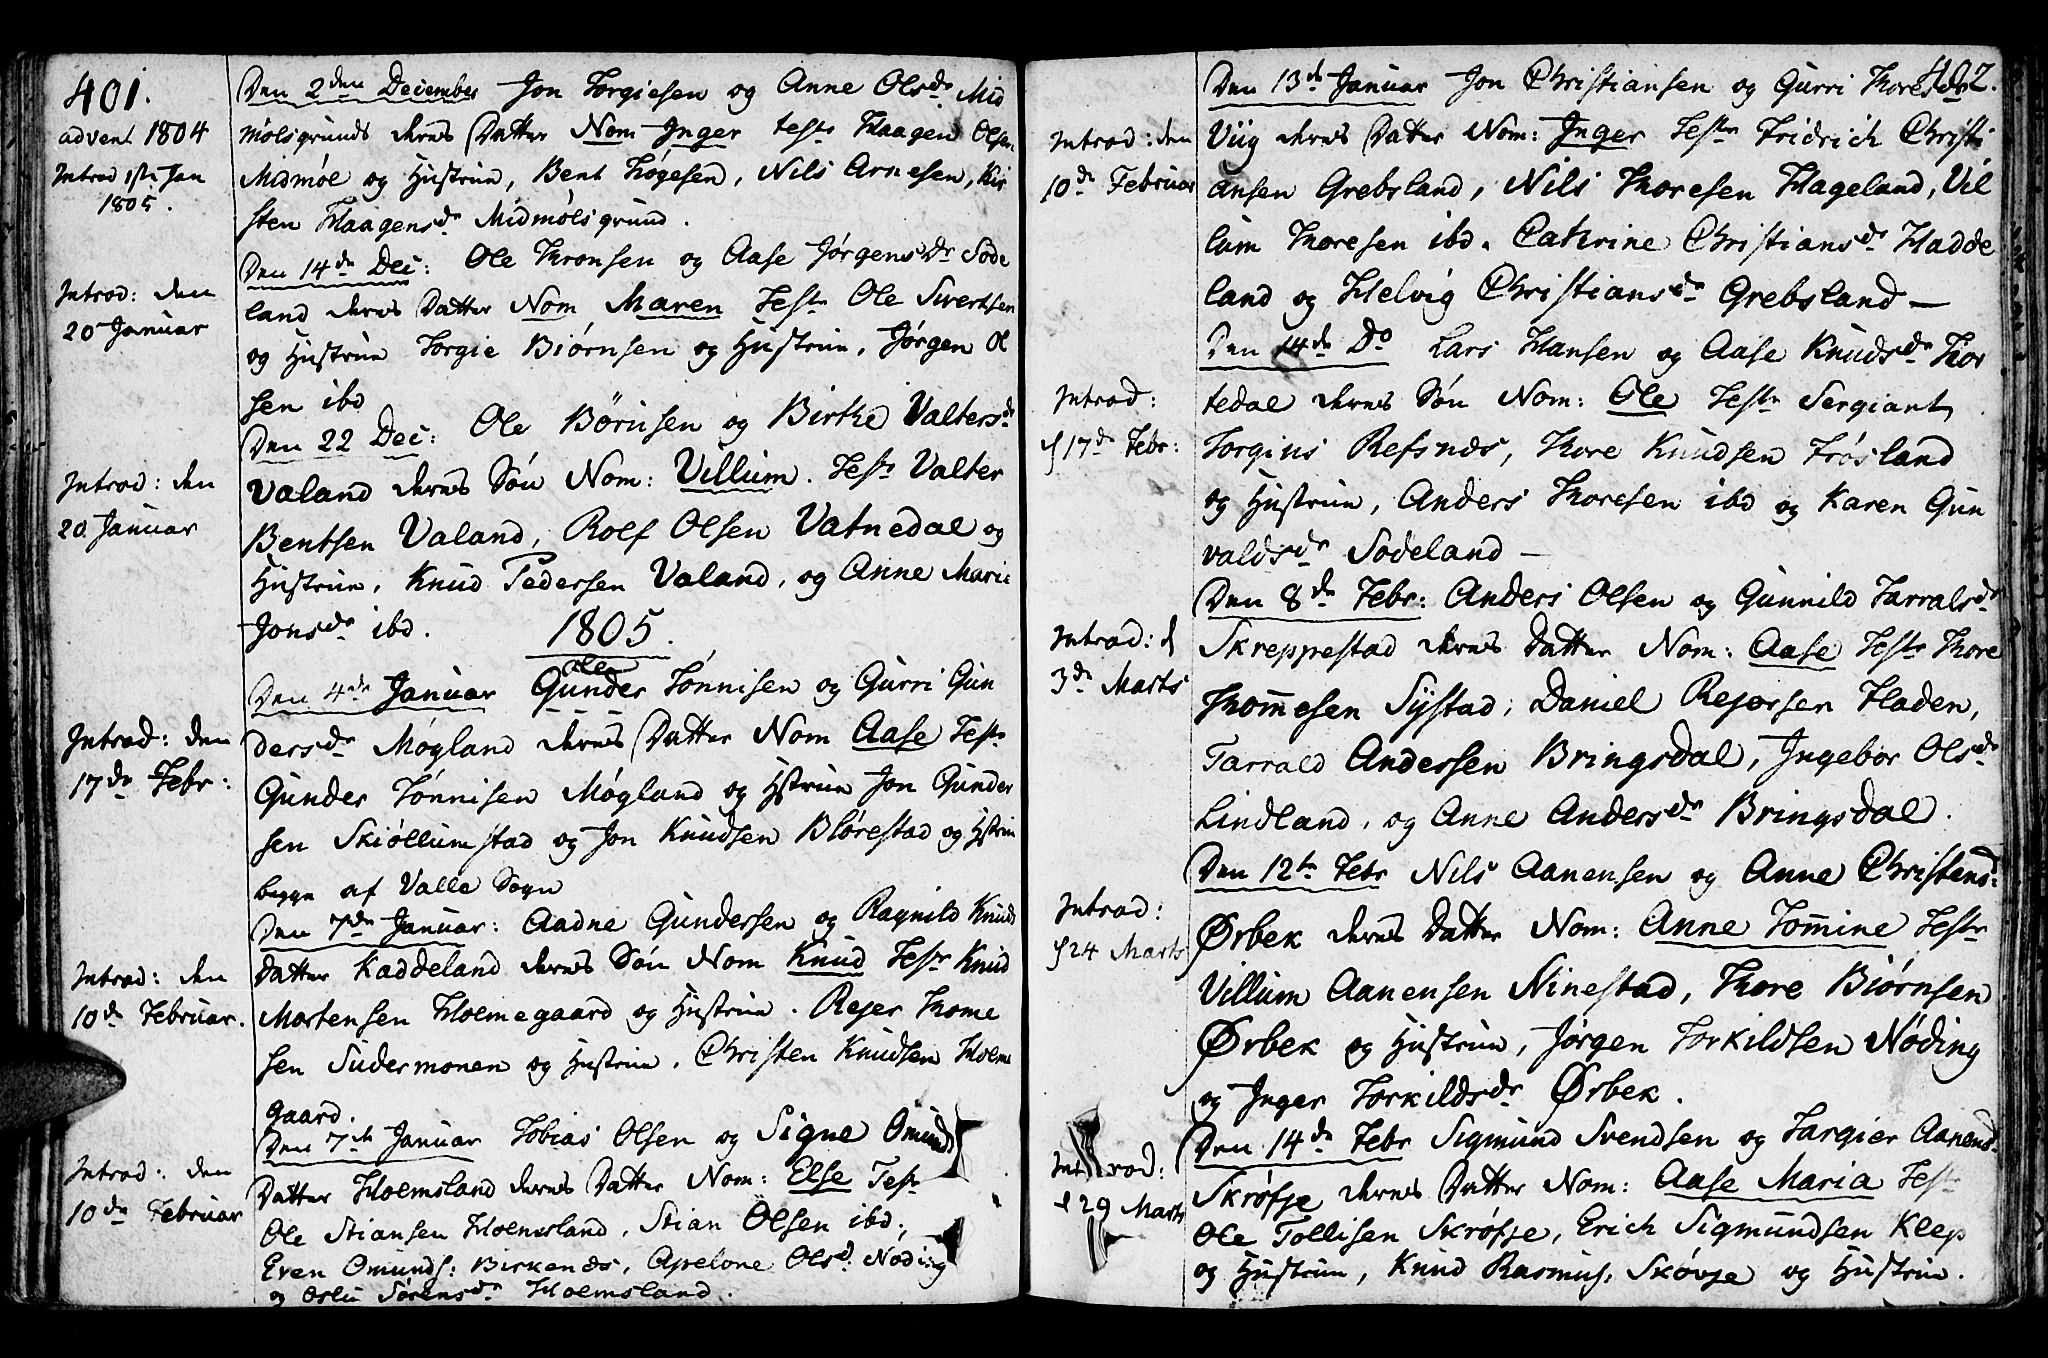 401.
advent 1804
Introd 1ste Jan
1805.
Den 2den December Jon Torgiesen og Anne Olsdr Mid
mølsgrund deres Datter Nom Inger testr Haagen Olsen
Midmøe og Hustrue, Bent Høgesen, Nils Arnesen, Kir
sten Haagensdr Midmølsgrund.
Introd: den
20 Januar
Den 14de Dec: Ole Thronsen og Aase Jørgensdr Sode
land deres Datter Nom Maren Testr Ole Sivertsen
og Hustrue Torgie Biørnsen og Hustrue, Jørgen Ol
sen ibd
Introd: den
20 Januar
Den 22 Dec: Ole Børusen og Birthe Valtersdr
Valand deres Søn Nom: Villum. Testr Valter
Bentsen Valand, Rolf Olsen Vatnedal og
Hustrue, Knud Pedersen Valand, og Anne Marie
Jonsdr ibd.
1805.
Introd: den
17de Febr:
Den 4de Januar Gunder Tønnisen og Gurri Gun
dersdr Møgland deres Datter Nom Aase Testr
Gunder Tønnisen Møgland og Hstrue Jon Gunder
sen Skiøllumstad og Jon Knudsen Blørestad og Hstrue
begge af Valle Sogn
Introd: den
10de Februar.
Den 7de Januar: Aadne Gundersen og Ragnild Knuds
datter Kaddeland deres Søn Nom Knud Testr Knud
Mortensen Holmegaard og Hustrue. Rejer Thome
sen Sudermonen og Hustrue, Christen Knudsen Holme
gaard.
Introd: den
10de Februar
Den 7de Januar Tobias Olsen og Signe Omunds
Datter Holmsland deres Datter Nom: Else Testr
Ole Stiansen Holmsland, Stian Olsen ibd,
Even Omunds: Birkenes, Apelone Olsd: Nøding
og Oslu Sørensdr Holmsland.
402.
Introd: den
10de Februar
Den 13de Januar Jon Christiansen og Gurri Thoresdr
Viig deres Datter Nom: Inger Testr Fridrich Christi
ansen Grebsland, Nils Thoresen Hageland, Vil
lum Thoresen ibd. Cathrine Christiansdr Hadde
land og Helvig Christiansdr Grebsland —
Introd:
d 17de Febr:
Den 14de Do Lars Hansen og Aase Knudsdr Hor
tedal deres Søn Nom: Ole Testr Sergiant
Torgius Refsnes, Thore Knudsen Frøsland
og Hustrue, Anders Thoresen ibd og Karen Gun
valdsdr Sodeland —
Introd: d
3de Marts
Den 8de Febr: Anders Olsen og Gunnild Tarralsdr
Skreppestad deres Datter Nom: Aase Testr Thore
Thom̄esen Systad, Daniel Rejersen Haden,
Tarrald Andersen Bringsdal, Ingebor Olsdr
Lindland, og Anne Andersdr Bringsdal.
Introd:
d 24 Marts
Den 12te Febr Nils Aanensen og Anne Christensd:
Ørbek deres Datter Nom: Anne Tom̄ine Testr
Villum Aanensen Ninestad, Thore Biørnsen
Ørbek og Hustrue, Jørgen Torkildsen Nøding
og Inger Torkildsdr Ørbek.
Introd:
d 29 Marts
Den 14de Febr Sigmund Svendsen og Targier Aanensd:
Skrøfje deres Datter Nom: Aase Maria Testr
Ole Tollisen Skrøfje, Erich Sigmundsen Kleep
og Hustrue, Knud Rasmus: Skøvje og Hustrue.